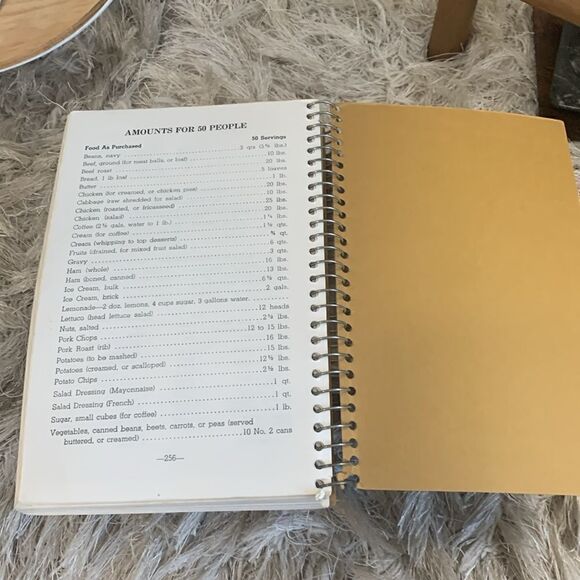 AMOUNTS FOR 50 PEOPLE
Food As Purchased 50 Servings
Beans, navy 3 qts. lbs.)
Beef, ground (for meat balls, or loaf) 10 lbs.
Beef roast 20 lbs.
Bread, 1 lb loaf 5 loaves
Butter 1 lb.
Chicken (for creamed, or chicken pies) 20 lbs.
Cabbage (raw shredded for salad) 10 lbs.
Chicken (roasted, or fricasseed) 25 lbs.
Chicken (salad) 20 lbs.
Coffee gals. water to 1 lb.) lbs.
Cream (for coffee) qts.
Cream (whipping to top desserts) ¾ qt.
Fruits (drained, for mixed fruit salad) 6 qts.
Gravy 3 qts.
Ham (whole) 16 lbs.
Ham (boned, canned) 13 lbs.
Ice Cream, bulk qts.
Ice Cream, brick 2 gals.
Lemonade—2 doz. lemons, 4 cups sugar, 3 gallons water.
Lettuce (head lettuce salad) 12 heads
Nuts, salted lbs.
Pork Chops 12 to 15 lbs.
Pork Roast (rib) 16 lbs.
Potatoes (to be mashed) 15 lbs.
Potatoes (creamed, or scalloped) lbs.
Potato Chips lbs.
Salad Dressing (Mayonnaise) 1 qt.
Salad Dressing (French) 1 qt.
Sugar, small cubes (for coffee) 1 lb.
Vegetables, canned beans, beets, carrots, or peas (served
buttered, or creamed) 10 No. 2 cans
—256—